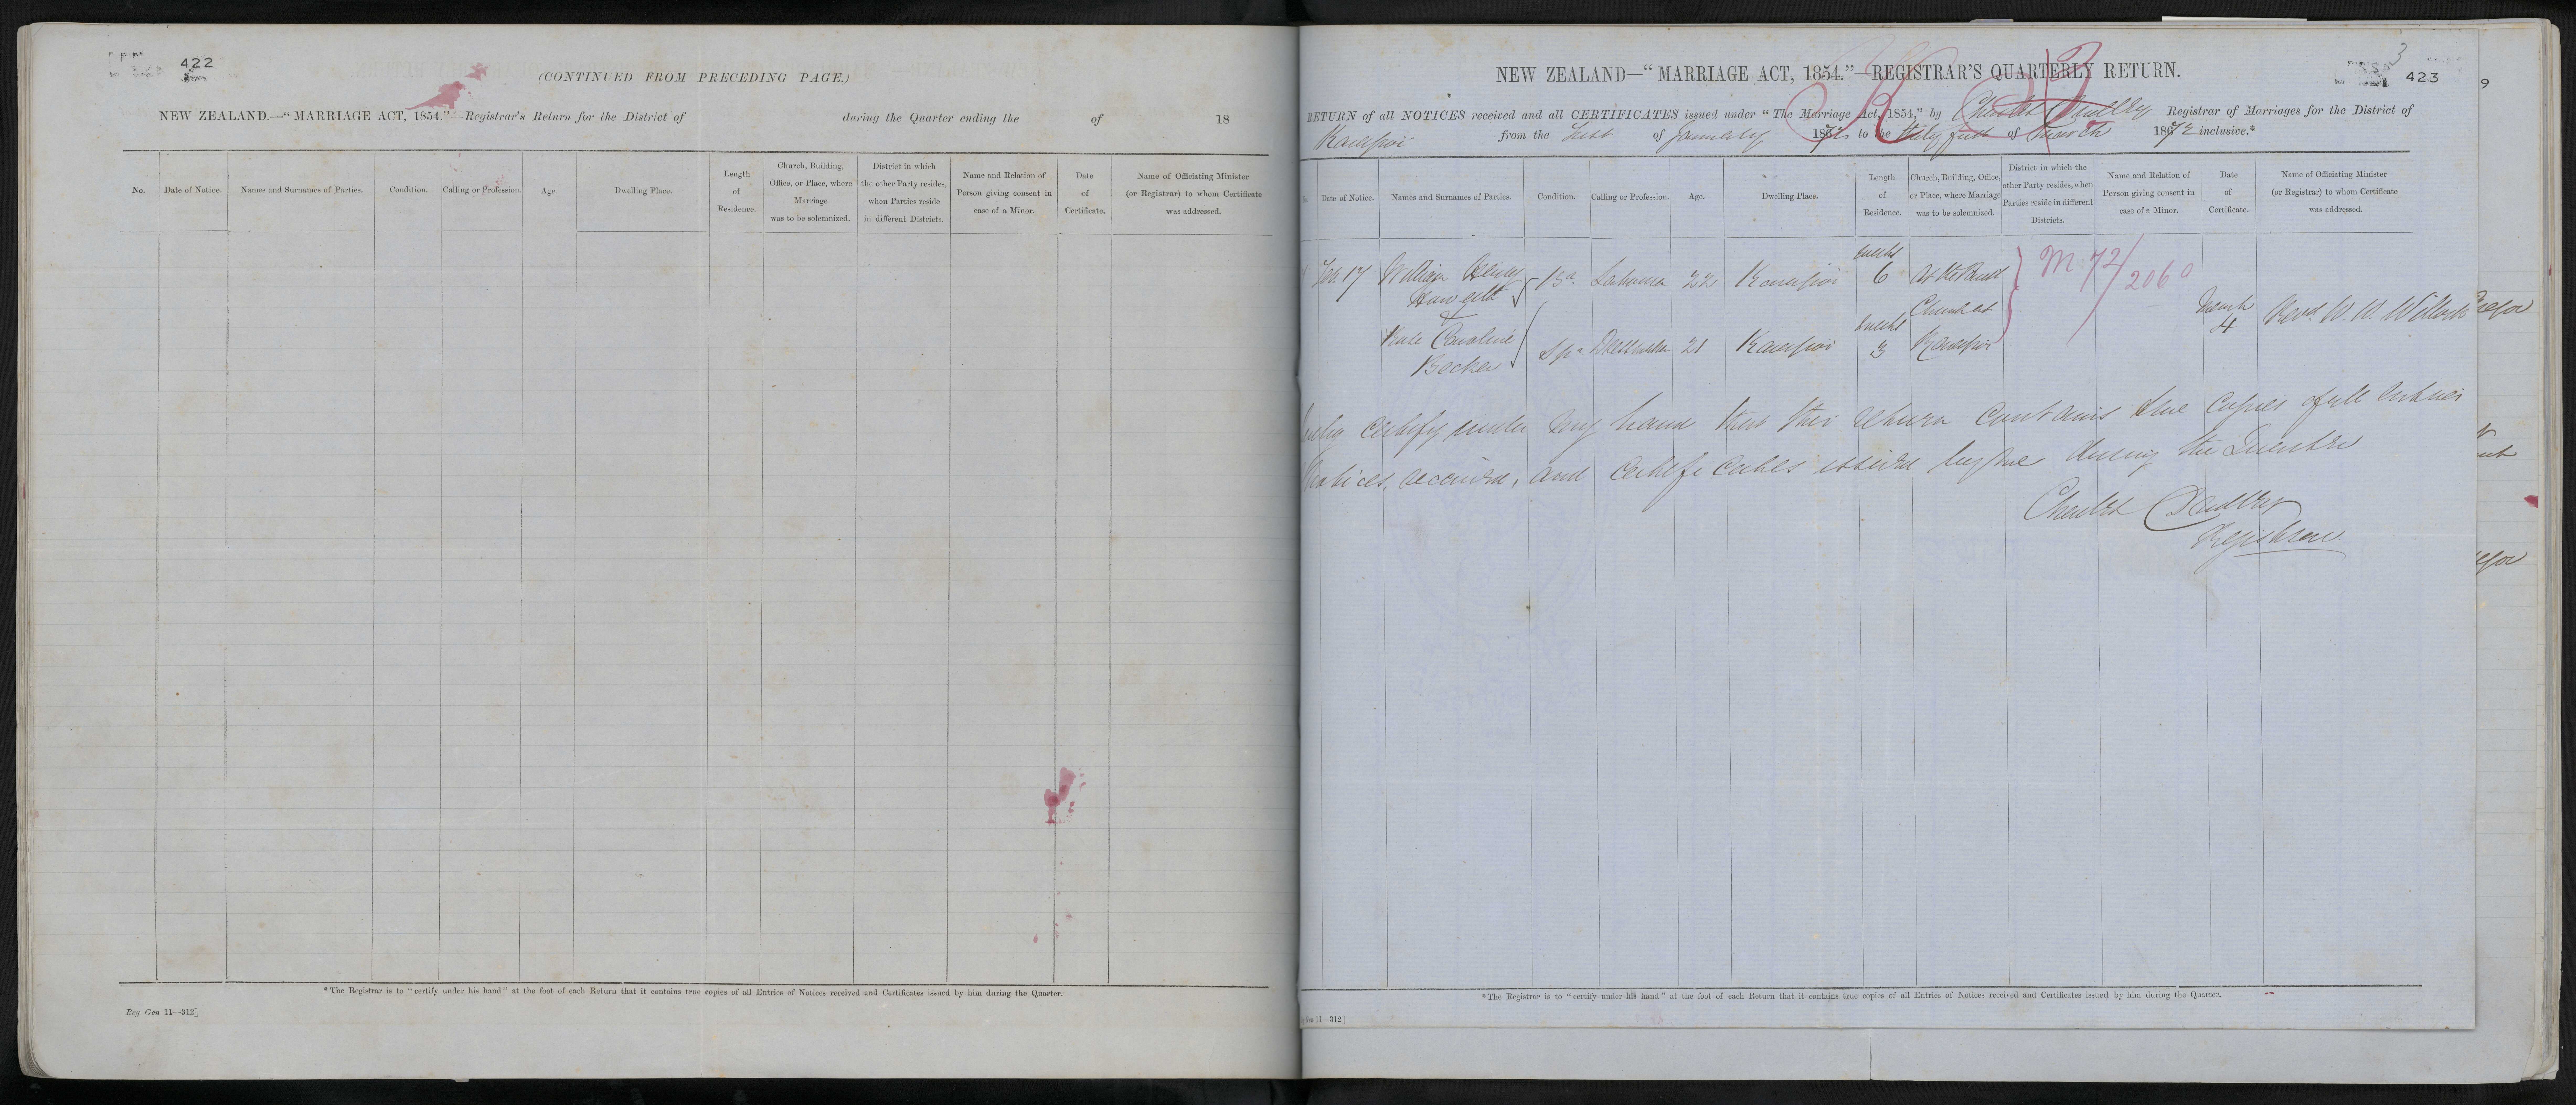 422
(CONTINUED FROM PRECEDING PAGE.)
NEW ZEALAND.—“MARRIAGE ACT, 1854.”—Registrar's Return for the District of during the Quarter ending the of 18
No. Date of Notice. Names and Surnames of Parties. Condition. Calling or Profession. Age. Dwelling Place. Length of Residence. Church, Building, Office, or Place, where Marriage was to be solemnized. District in which the other Party resides, when Parties reside in different Districts. Name and Relation of Person giving consent in case of a Minor. Date of Certificate. Name of Officiating Minister (or Registrar) to whom Certificate was addressed.
*The Registrar is to “certify under his hand” at the foot of each Return that it contains true copies of all Entries of Notices received and Certificates issued by him during the Quarter.
Reg Gen 11—312]
3
423
9
NEW ZEALAND—“MARRIAGE ACT, 1854.”—REGISTRAR'S QUARTERLY RETURN.
RETURN of all NOTICES received and all CERTIFICATES issued under “The Marriage Act, 1854,” by Charles Dudley Registrar of Marriages for the District of
Kaiapoi from the first of January 1872 to the thirty first of March 1872 inclusive.*
Date of Notice. Names and Surnames of Parties. Condition. Calling or Profession. Age. Dwelling Place. Length of Residence. Church, Building, Office, or Place, where Marriage was to be solemnized. District in which the other Party resides, when Parties reside in different Districts. Name and Relation of Person giving consent in case of a Minor. Date of Certificate. Name of Officiating Minister (or Registrar) to whom Certificate was addressed.
Feb 17 William Henry Br Labourer 22 Kaiapoi weeks 6 At the Parish M 72/2060
& Church at March 4 Revd. W. W. Willock
Kate Caroline Becker Spr 21 Kaiapoi weeks 3 Kaiapoi
certify under my hand that this return contains true copies of all entries
Notices, received, and certificates issued by me during the Quarter
Charles Dudley
Registrar
*The Registrar is to “certify under his hand” at the foot of each Return that it contains true copies of all Entries of Notices received and Certificates issued by him during the Quarter.
Gen 11—312]